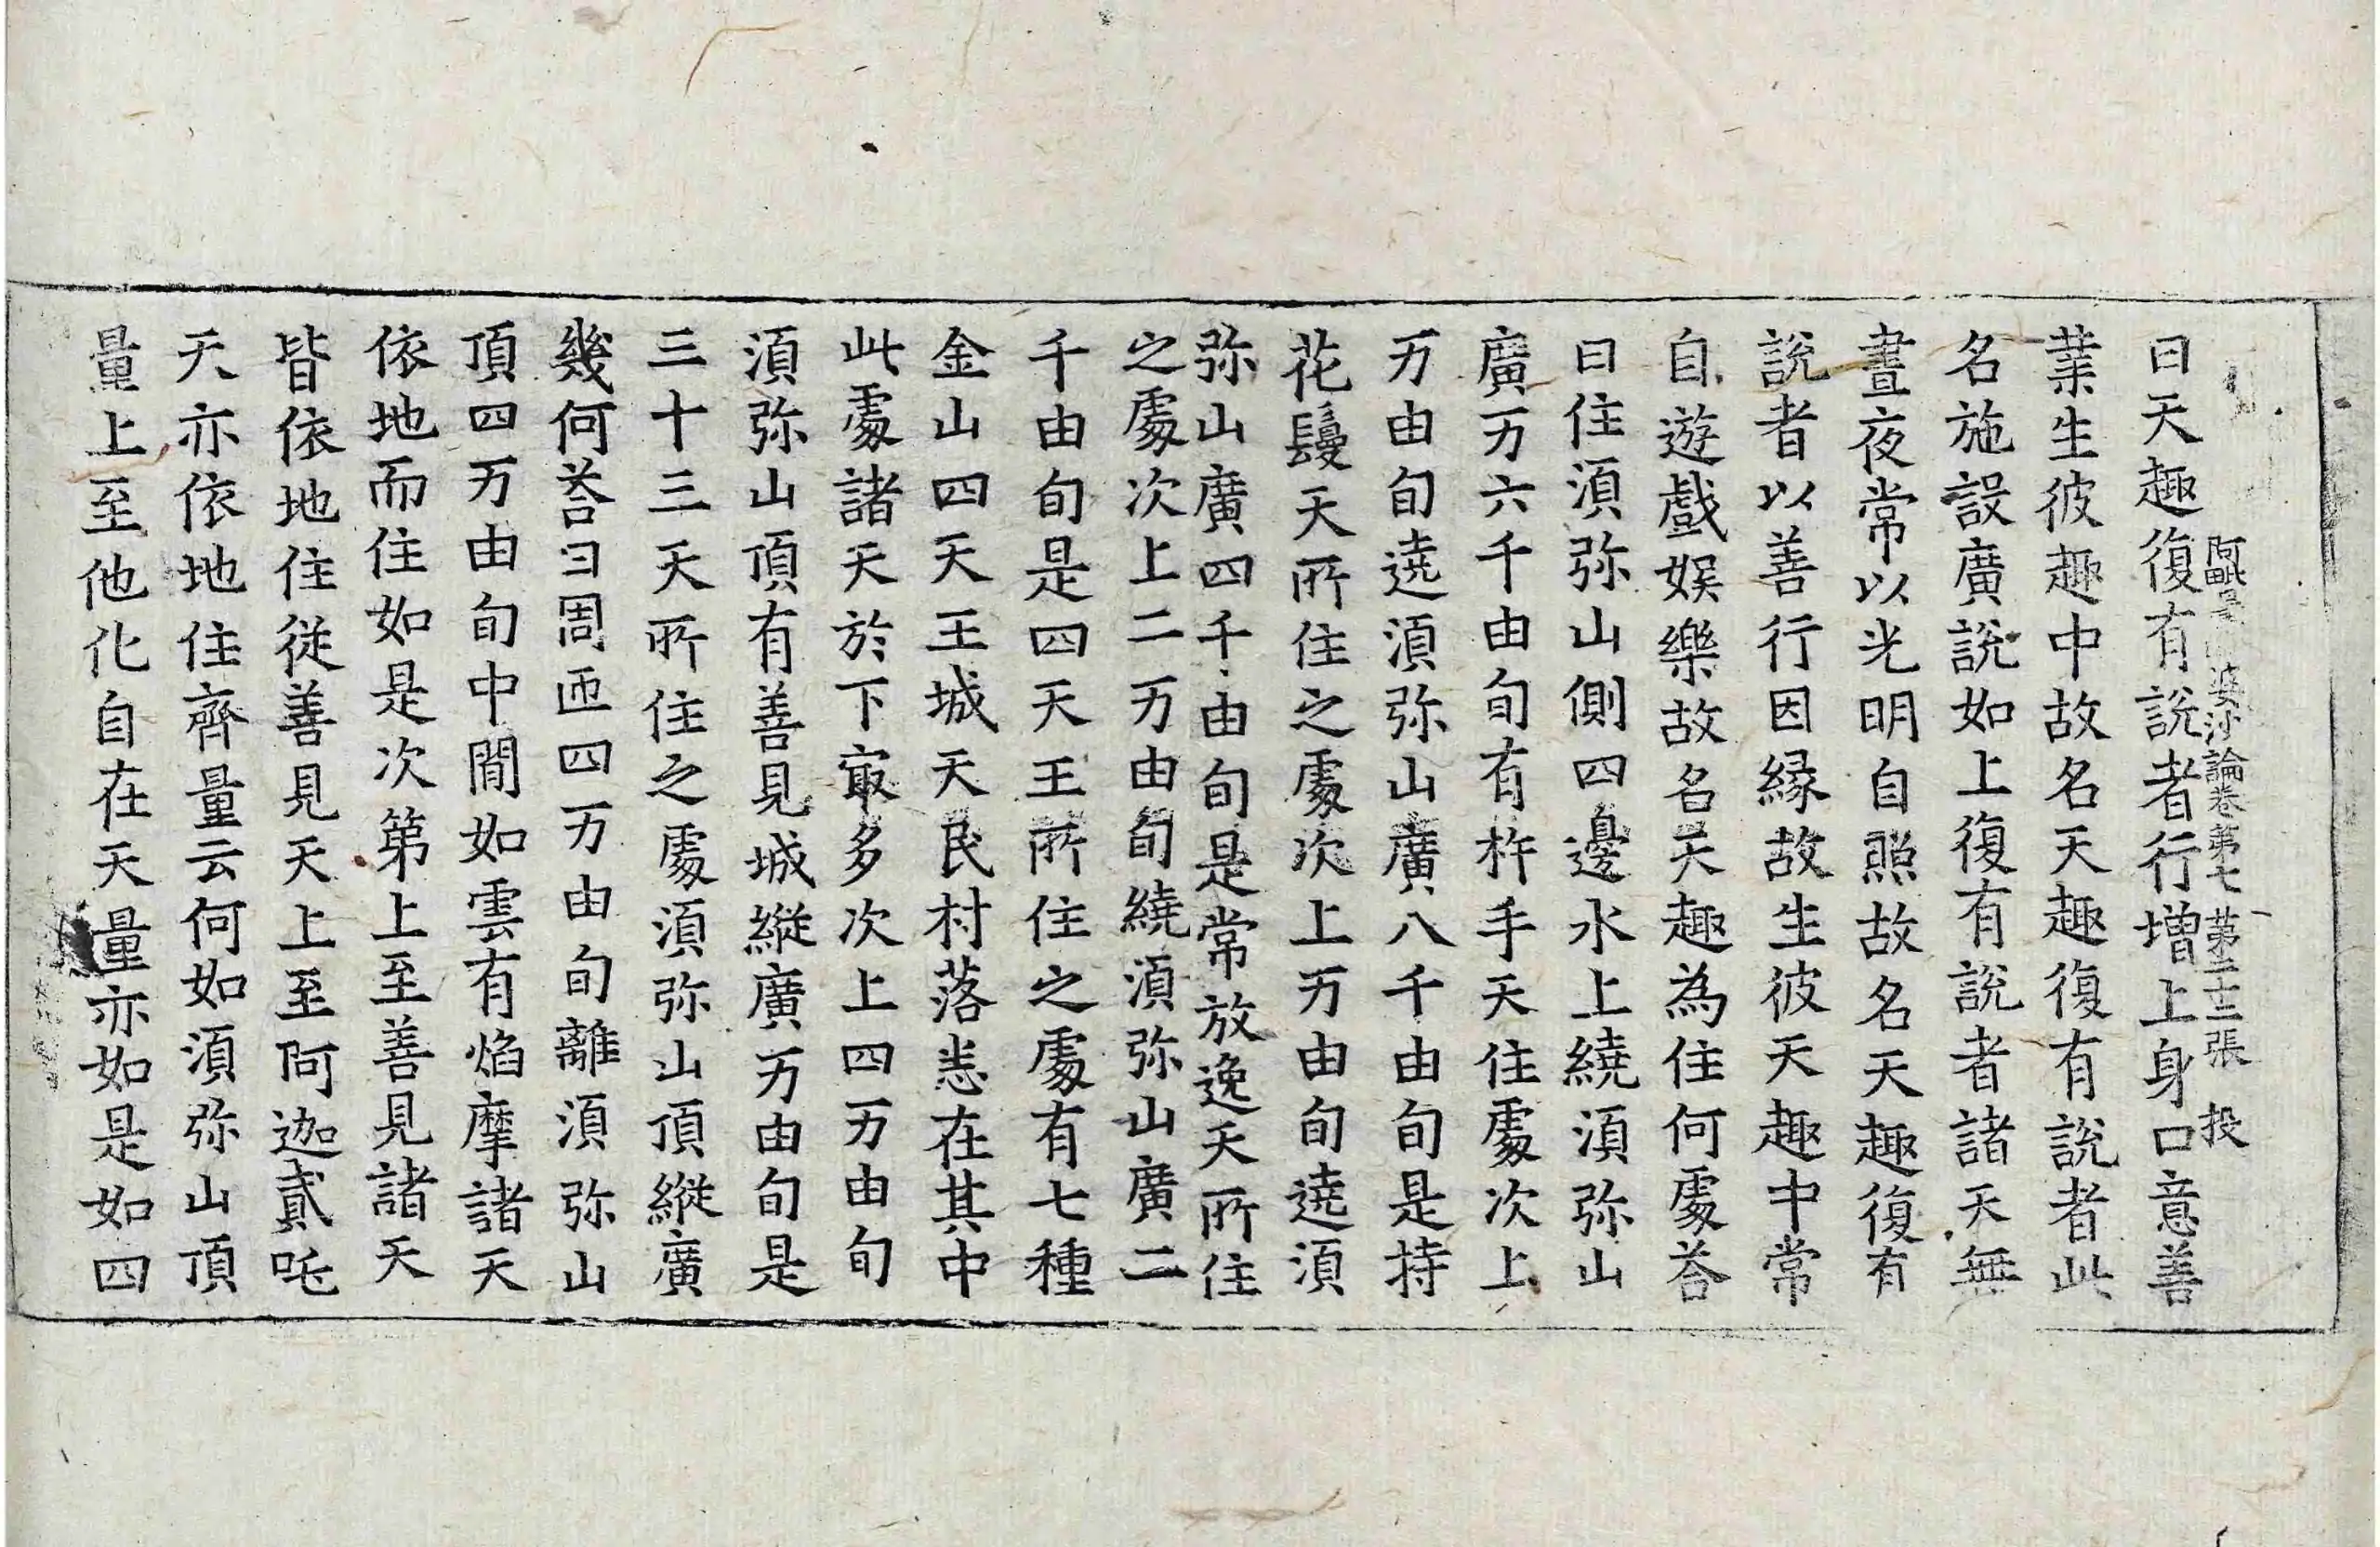 阿毗曇婆沙論卷第七 第二十三張 投
曰天趣復有說者行增上身口意善
業生彼趣中故名天趣復有說者此
名施設廣說如上復有說者諸天無
晝夜常以光明自照故名天趣復有
說者以善行因緣故生彼天趣中常
自遊戲娛樂故名天趣為住何處荅
曰住湏弥山側四邊水上繞湏弥山
廣万六千由旬有杵手天住處次上
万由旬遶湏弥山廣八千由旬是持
花鬘天所住之處次上万由旬遶湏
弥山廣四千由旬是常放逸天所住
之處次上二万由旬繞湏弥山廣二
千由旬是四天王所住之處有七種
金山四天王城天民村落悉在其中
此處諸天於下㝡多次上四万由旬
湏弥山頂有善見城縱廣万由旬是
三十三天所住之處湏弥山頂縱廣
幾何荅曰周迊四万由旬離湏弥山
頂四万由旬中間如雲有焰摩諸天
依地而住如是次第上至善見諸天
皆依地住從善見天上至阿迦貳吒
天亦依地住齊量云何如湏弥山頂
量上至他化自在天量亦如是如四